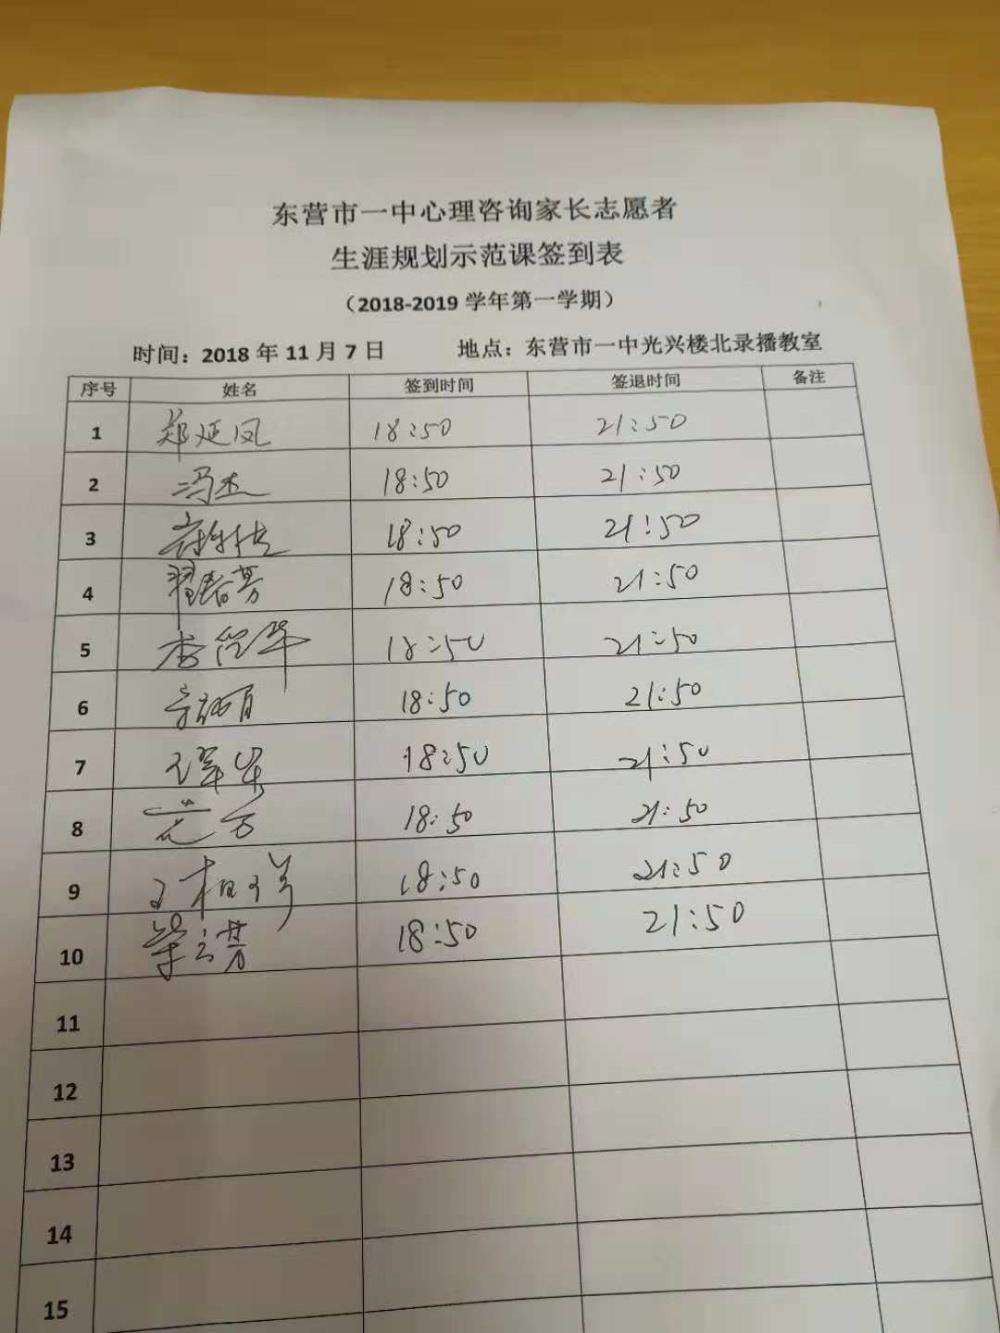 东营市一中心理咨询家长志愿者
生涯规划示范课签到表
（2018-2019 学年第一学期）
时间：2018 年 11 月 7 日 地点：东营市一中光兴楼北录播教室
序号 姓名 签到时间 签退时间 备注
1 郑延凤 18:50 21:50
2 冯杰 18:50 21:50
3 18:50 21:50
4 翟春芳 18:50 21:50
5 李 华 18:50 21:50
6 18:50 21:50
7 18:50 21:50
8 18:50 21:50
9 王相祥 18:50 21:50
10 梁云芳 18:50 21:50
11
12
13
14
15